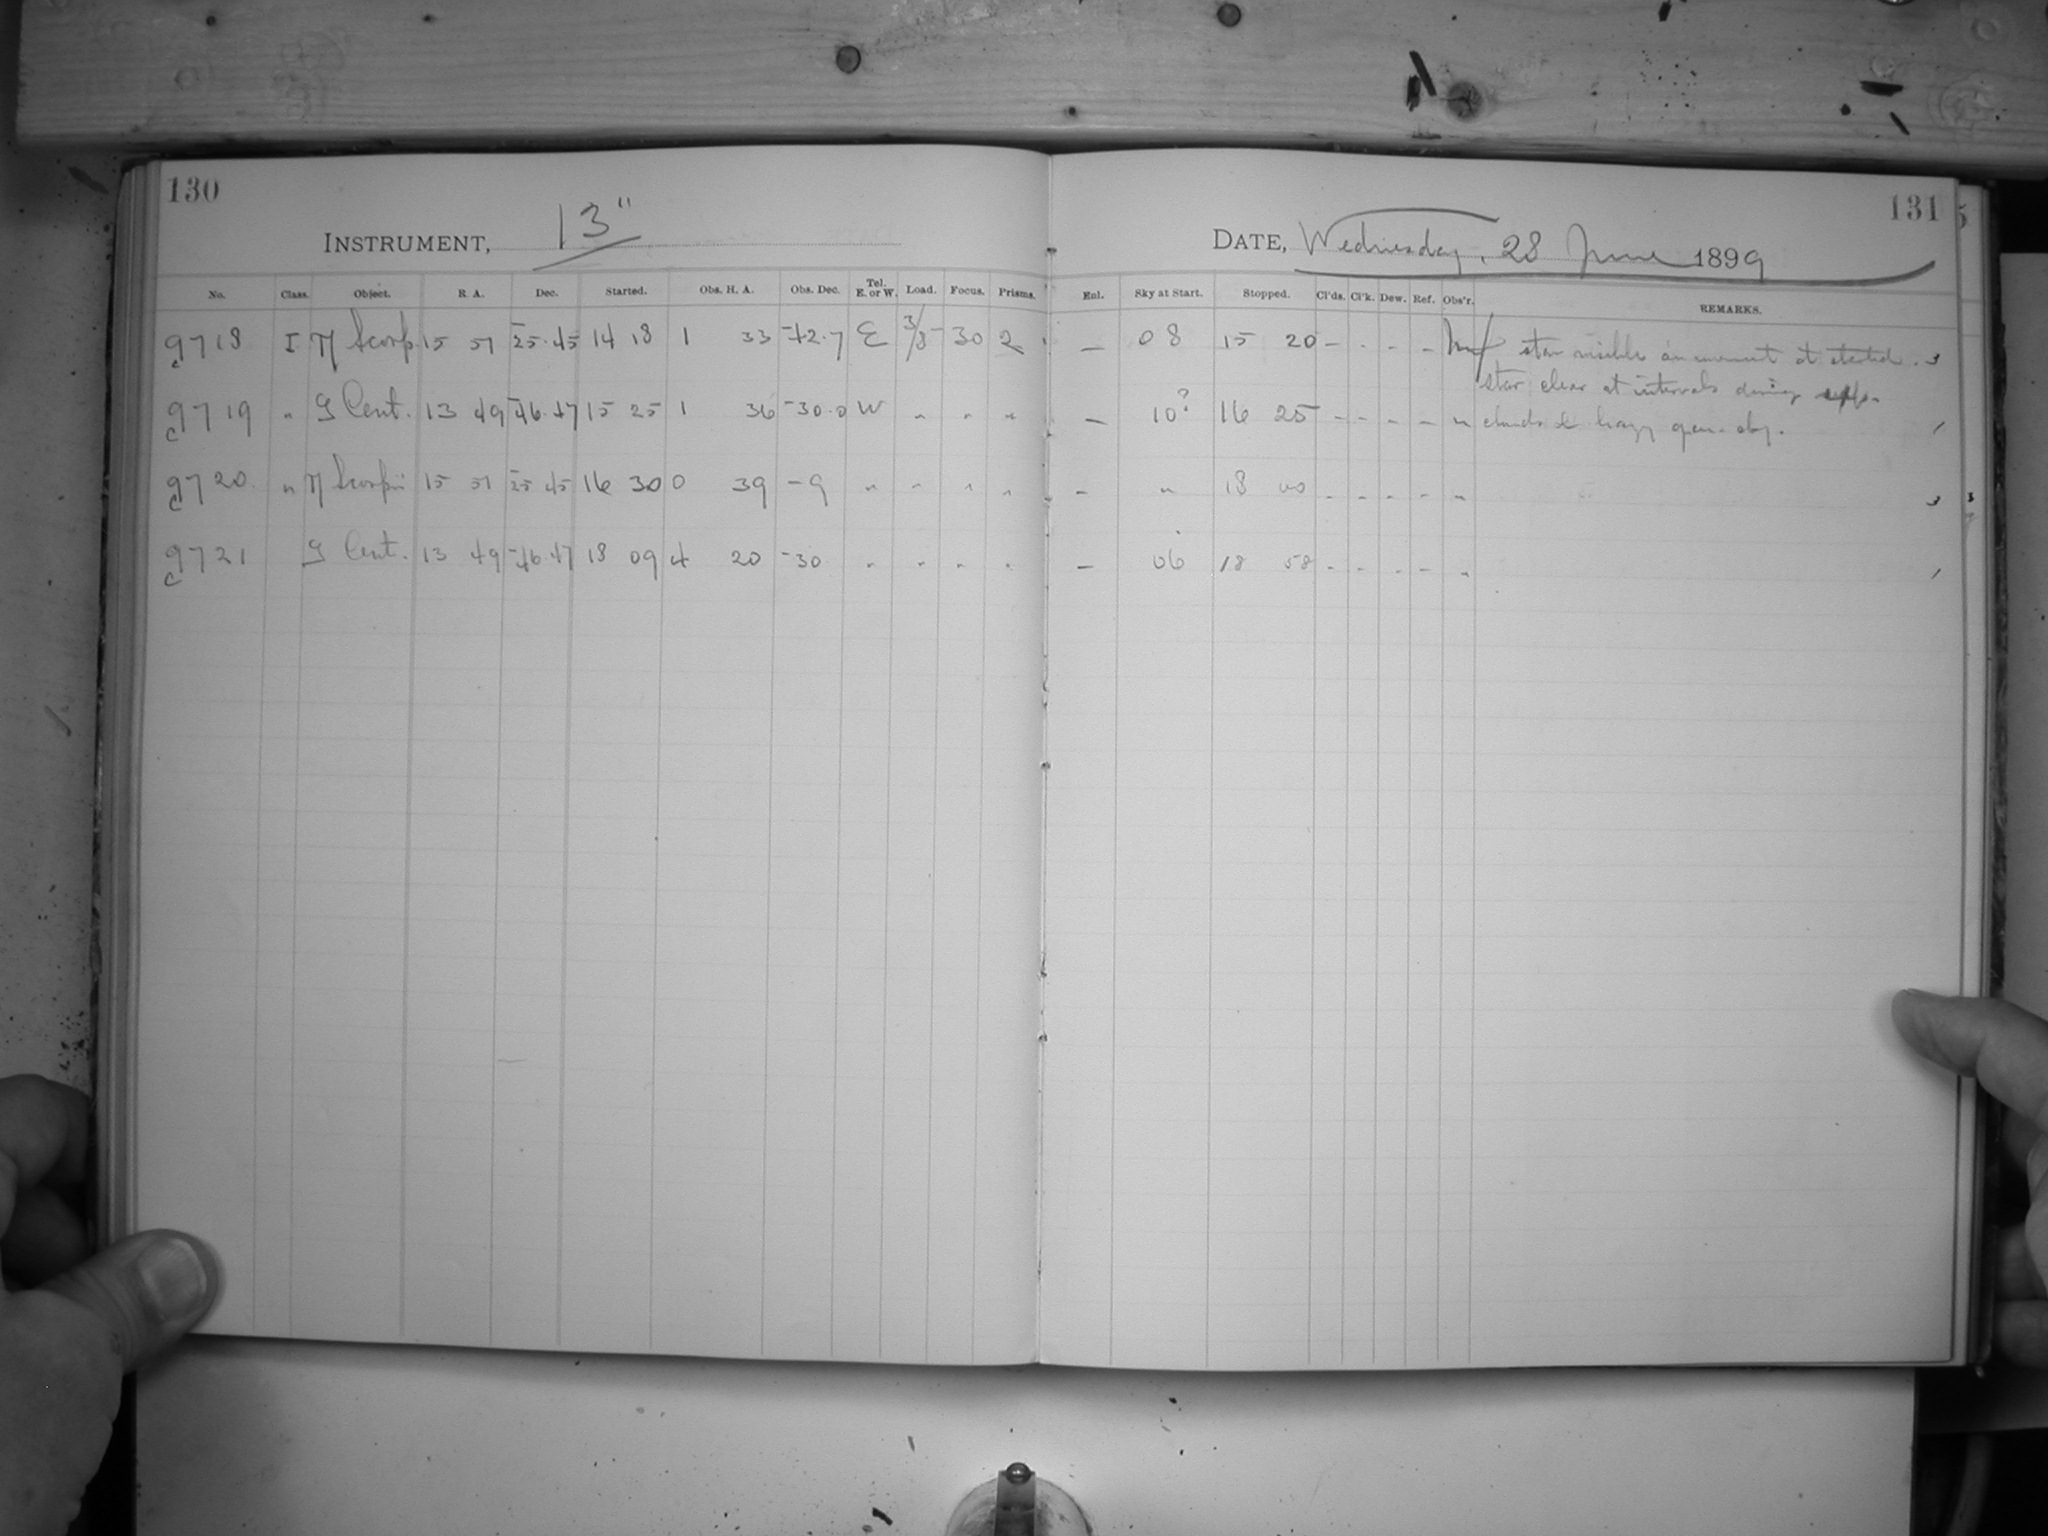 130
131
INSTRUMENT, 13"
DATE, Wednesday, 28 June 1899
No. Class. Object. R. A. Dec. Started. Obs. H. A. Obs. Dec. Tel. E. or W. Load. Focus. Prisms. Enl. Sky at Start. Stopped. Cl'ds. Cl'k. Dew. Ref. Obs'r. REMARKS.
C 9718 I η Scorp. 15 51 -25.45 14 18 1 33 -42.7 E 3/8 30 2 — 08 15 20 - - - - star visible at started. 3
star clear at intervals during
C 9719 " Cent. 13 49 -46.47 15 25 1 36 -30.0 W " " " — 10? 16 25 - - - - " clouds & hazy 1
C 9720 " η Scorpii 15 51 -25 45 16 30 0 39 -9 " " " " - " 18 00 - - - - " 3
C 9721 Cent. 13 49 -46.47 18 09 4 20 -30 " " " " — 06 18 58 - - - - " 1